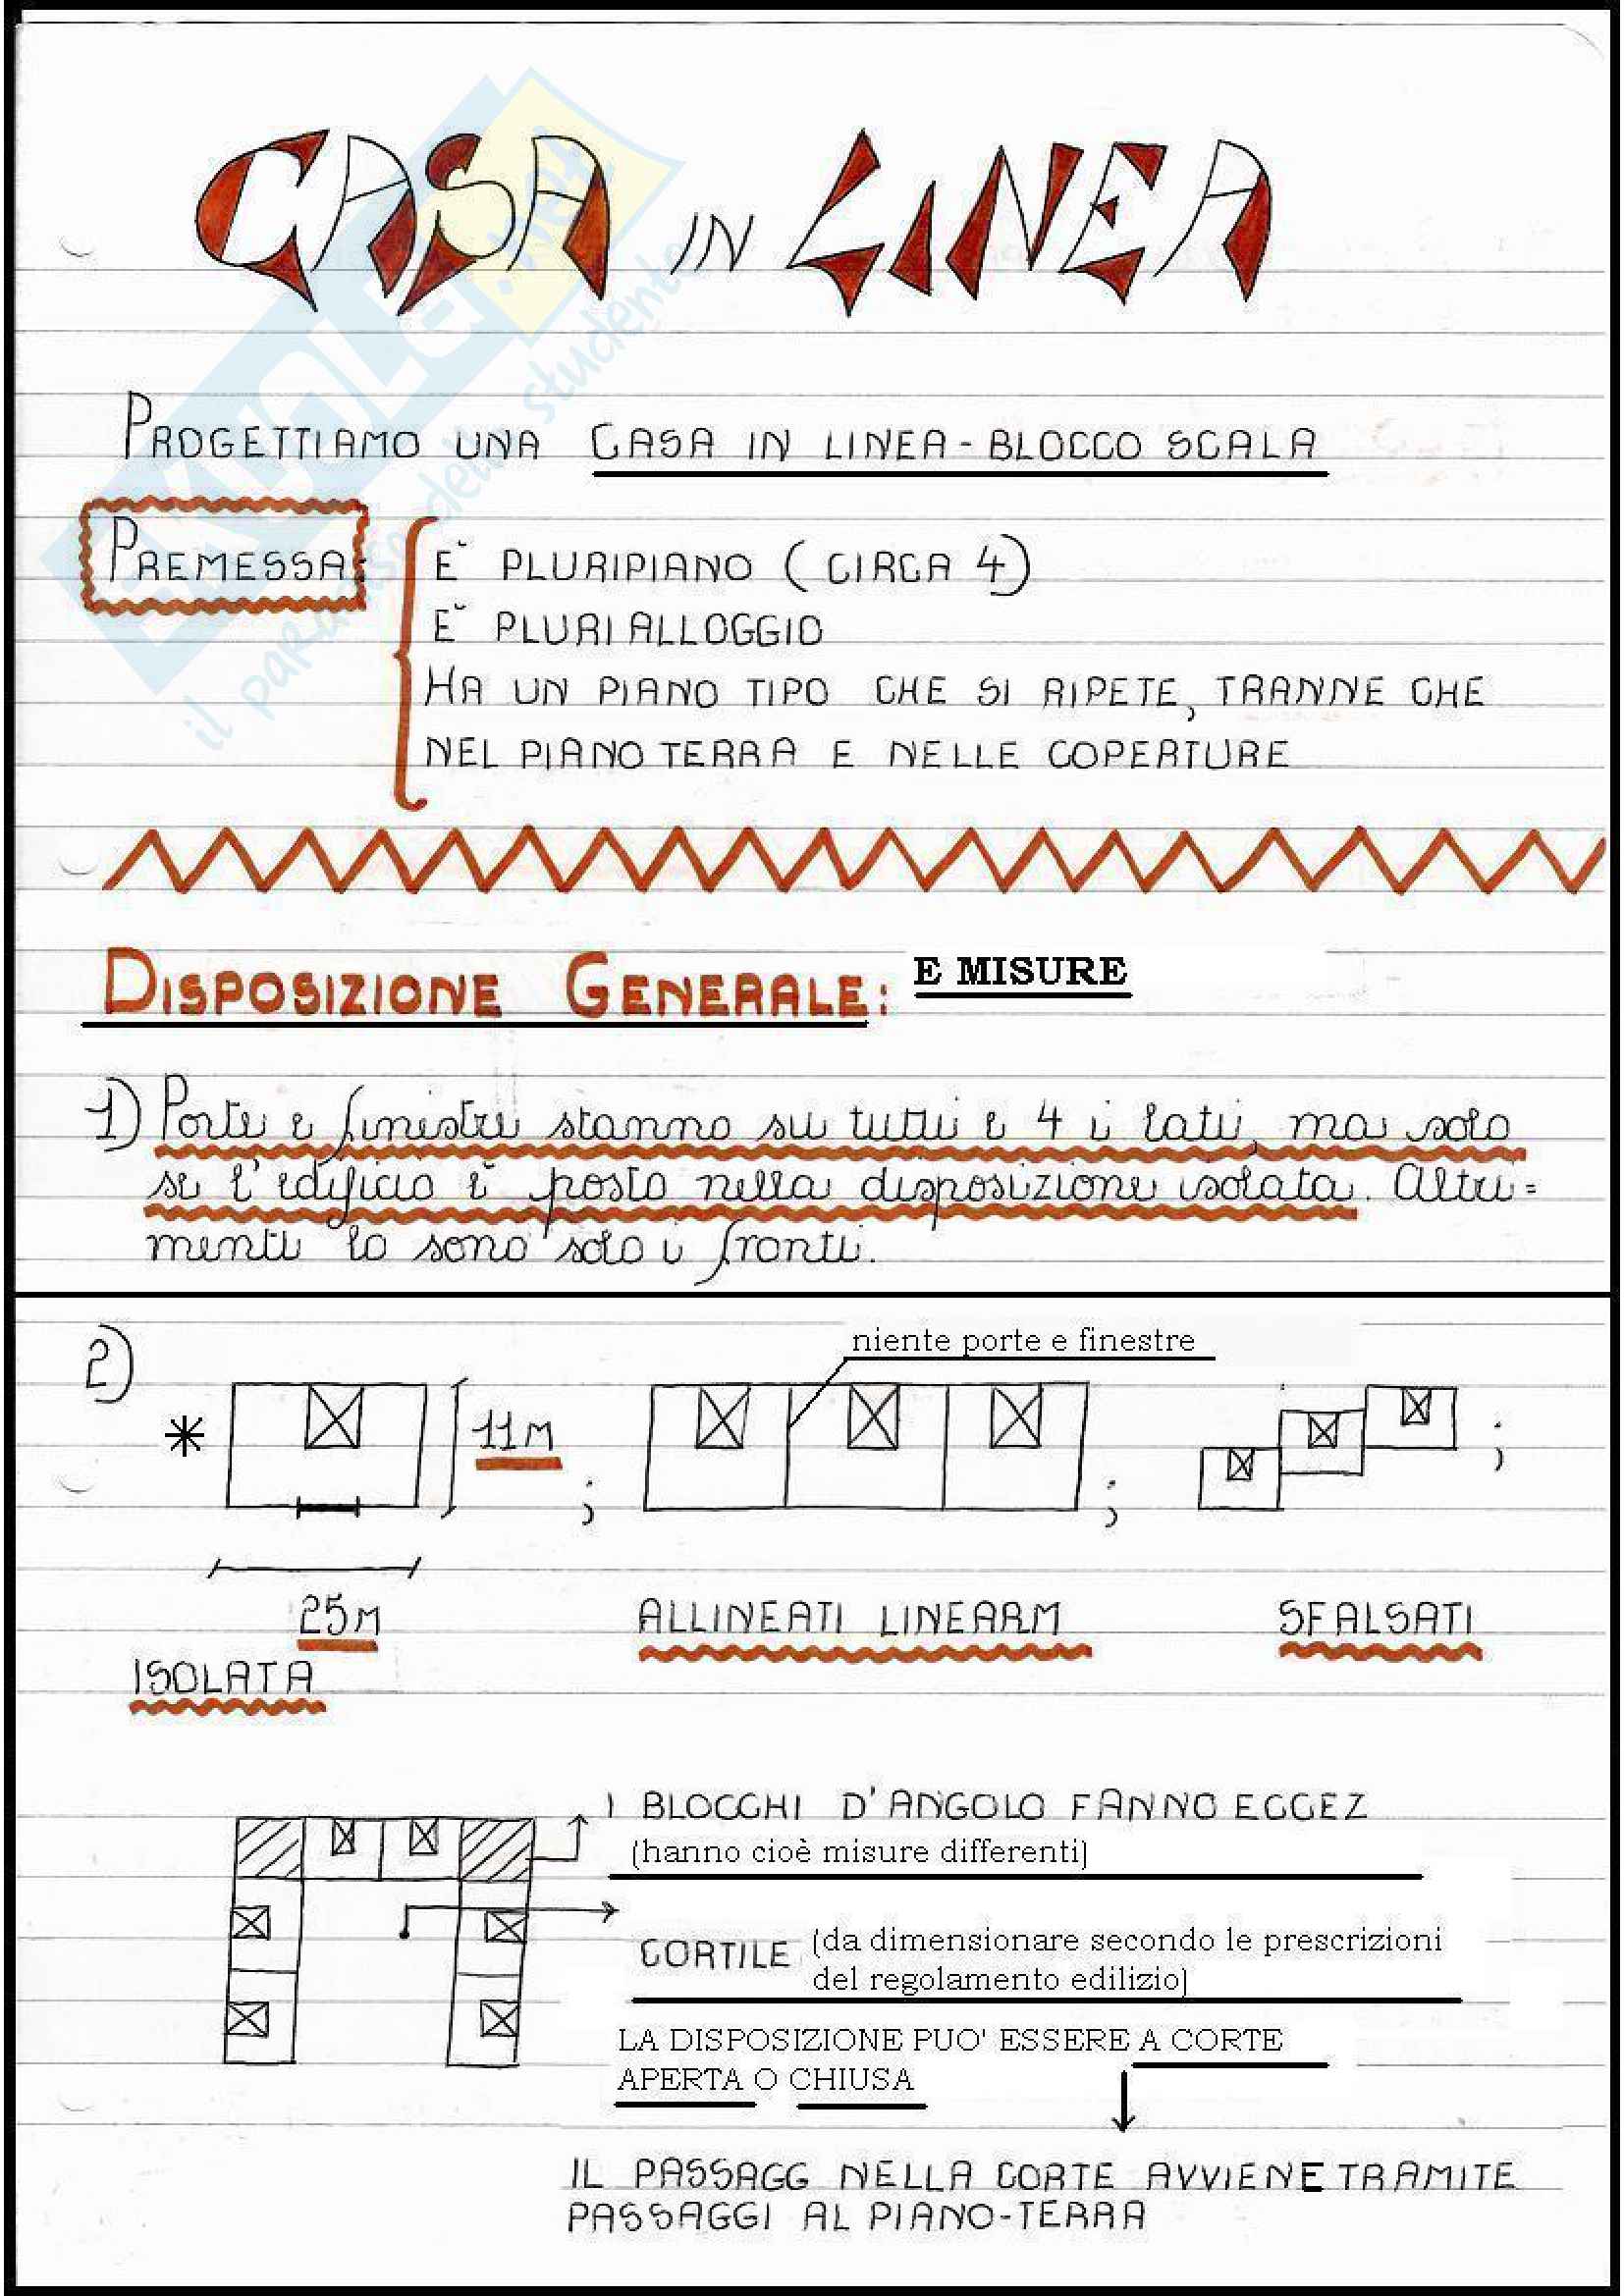 CASA IN LINEA
PROGETTIAMO UNA CASA IN LINEA - BLOCCO SCALA
PREMESSA:
E' PLURIPIANO (CIRCA 4)
E' PLURIALLOGGIO
HA UN PIANO TIPO CHE SI RIPETE, TRANNE CHE
NEL PIANO TERRA E NELLE COPERTURE
DISPOSIZIONE GENERALE: E MISURE
1) Porte e finestre stanno su tutti e 4 i lati, ma solo
se l'edificio è posto nella disposizione isolata. Altri=
menti lo sono solo i fronti.
2)
niente porte e finestre
* 11M ; ; ;
25M
ALLINEATI LINEARM
SFALSATI
ISOLATA
I BLOCCHI D'ANGOLO FANNO ECCEZ
(hanno cioè misure differenti)
CORTILE (da dimensionare secondo le prescrizioni
del regolamento edilizio)
LA DISPOSIZIONE PUO' ESSERE A CORTE
APERTA O CHIUSA
IL PASSAGG NELLA CORTE AVVIENE TRAMITE
PASSAGGI AL PIANO-TERRA
SKUOLA.net
il paradiso dello studente